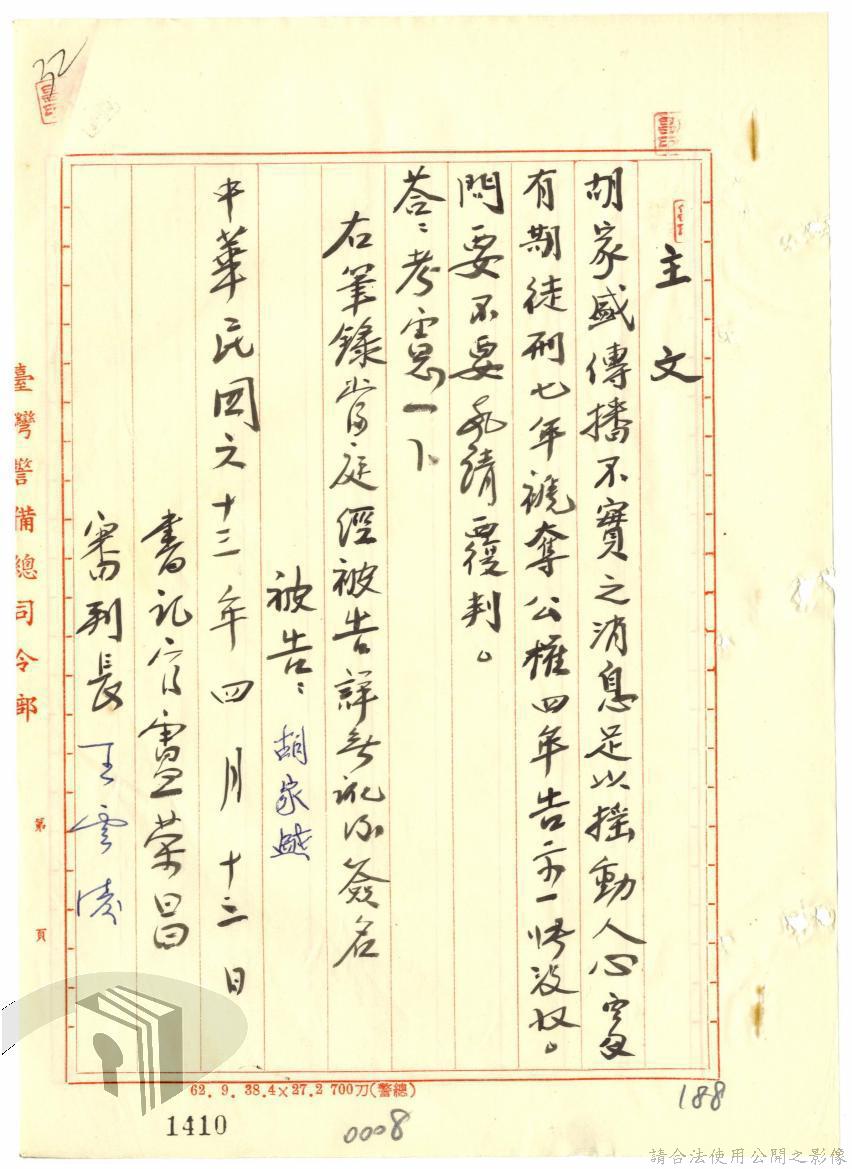 主文
胡家盛傳播不實之消息足以搖動人心處
有期徒刑七年褫奪公權四年告示一悟沒收。
問要不要聲請覆判。
答：考慮一下
右筆錄當庭經被告詳無訛後簽名
被告：胡家盛
中華民國六十三年四月十三日
書記官盧榮昌
審判長王雲濤
臺灣警備總司令部
第 頁
62. 9. 38.4×27.2 700刀(警總)
1410
0008
188
32
請合法使用公開之影像